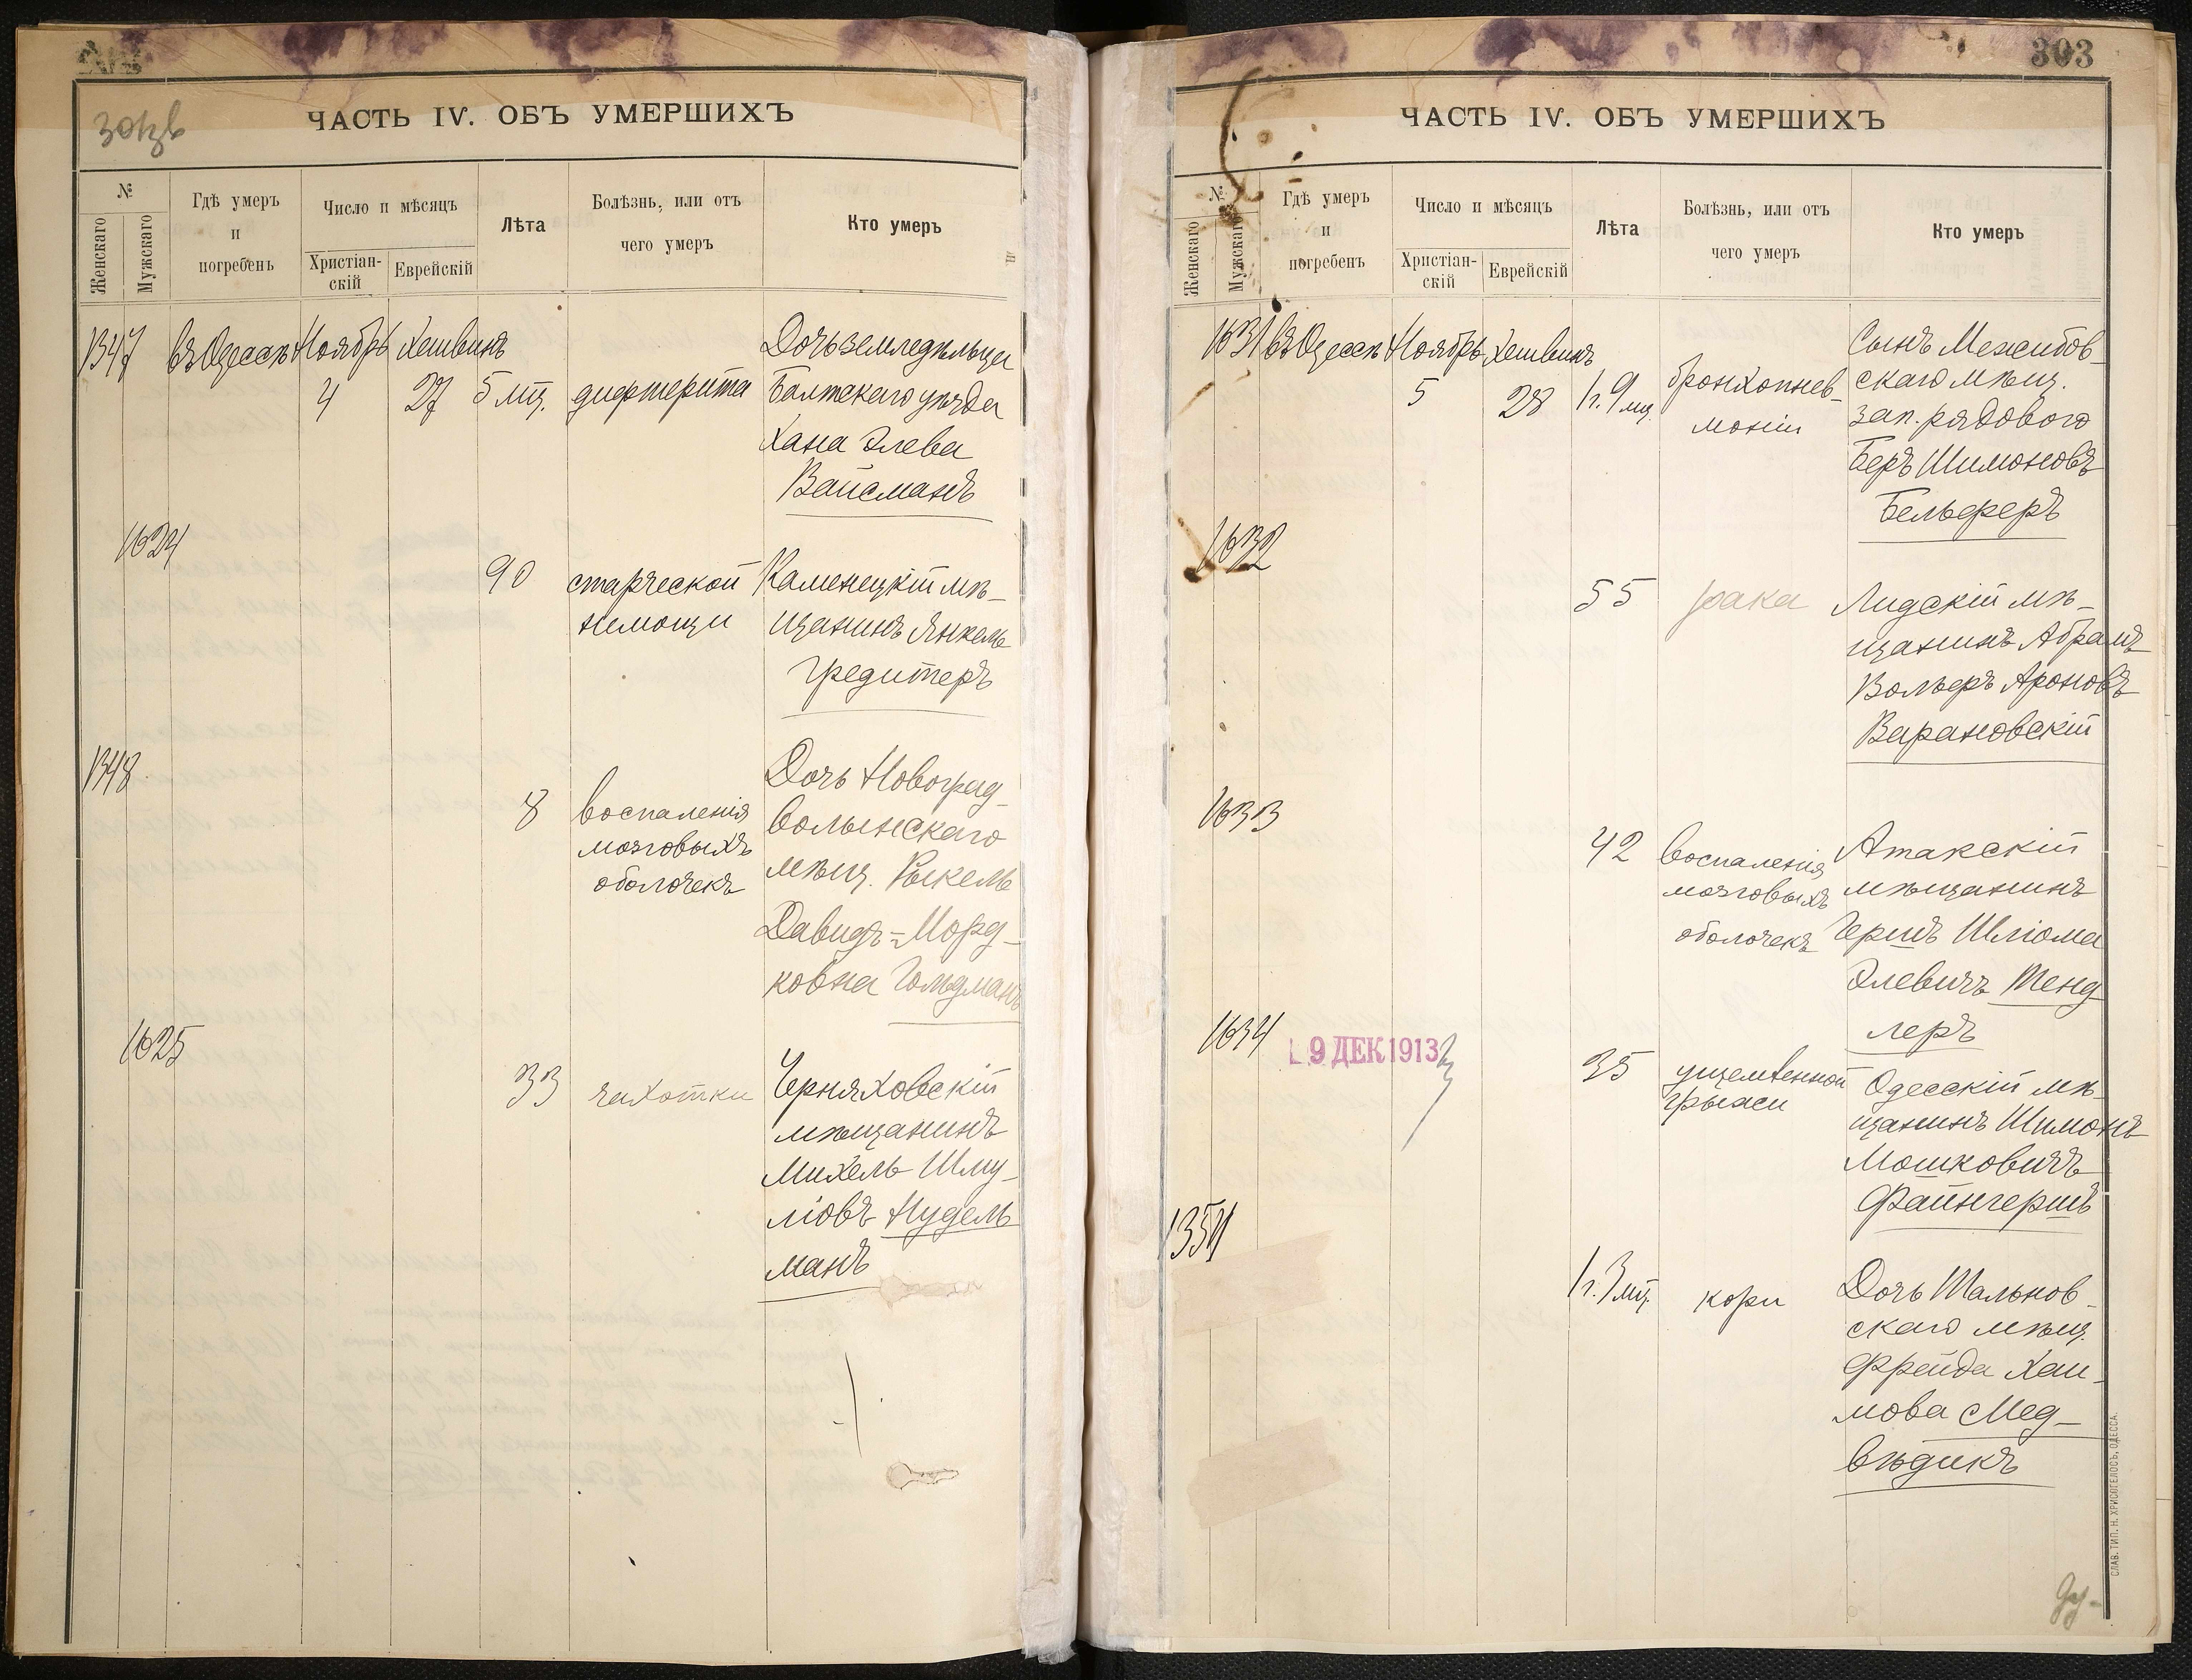 ЧАСТЬ IV. ОБЪ УМЕРШИХЪ
№
Женскаго
Мужскаго
Гдѣ умеръ
и
погребенъ
Число и мѣсяцъ
Христіан-
скій
Еврейскій
Лѣта
Болѣзнь, или отъ
чего умеръ
Кто умеръ
1347 въ Одессѣ Ноябрь Хешвинъ
4 27 5 мц. дифтерита
Дочь земледѣльца
Балтскаго уѣзда
Хана Элева
Вайсманъ
1624
90 старческой
немощи
Каменецкій мѣ-
щанинъ Янкель
Гредитеръ
1348
8 воспаленія
мозговыхъ
оболочекъ
Дочь Новоград-
волынскаго
мѣщ. Рыкель
Давидъ=Морд-
ковна Гольдманъ
1625
33 чахотки
Черняховскій
мѣщанинъ
Михель Шму-
ліовъ Нудель
манъ
303
ЧАСТЬ IV. ОБЪ УМЕРШИХЪ
№
Женскаго
Мужскаго
Гдѣ умеръ
и
погребенъ
Число и мѣсяцъ
Христіан-
скій
Еврейскій
Лѣта
Болѣзнь, или отъ
чего умеръ
Кто умеръ
1631 въ Одессѣ Ноябрь Хешвинъ
5 28 1 г. 9 мц. бронхопнев-
моніи
Сынъ Межибов-
скаго мѣщ.
зап. рядового
Беръ Шимоновъ
Бельферъ
1632
55 рака
Лидскій мѣ-
щанинъ Абрамъ
Вольфъ Ароновъ
Варановскій
1633
42 воспаленія
мозговыхъ
оболочекъ
Атакскій
мѣщанинъ
Гершъ Шліома
Элевичъ Тенд
леръ
1634
9 ДЕК 1913
35 ущемленной
грыжи
Одесскій мѣ-
щанинъ Шимонъ
Мошковичъ
Файнгершъ
1351
1 г. 3 мц. кори
Дочь Тальнов-
скаго мѣщ.
Фрейда Хаи-
мова Мед-
вѣдикъ
СЛАВ. ТИП. Н. ХРИСОГЕЛОСЪ, ОДЕССА.